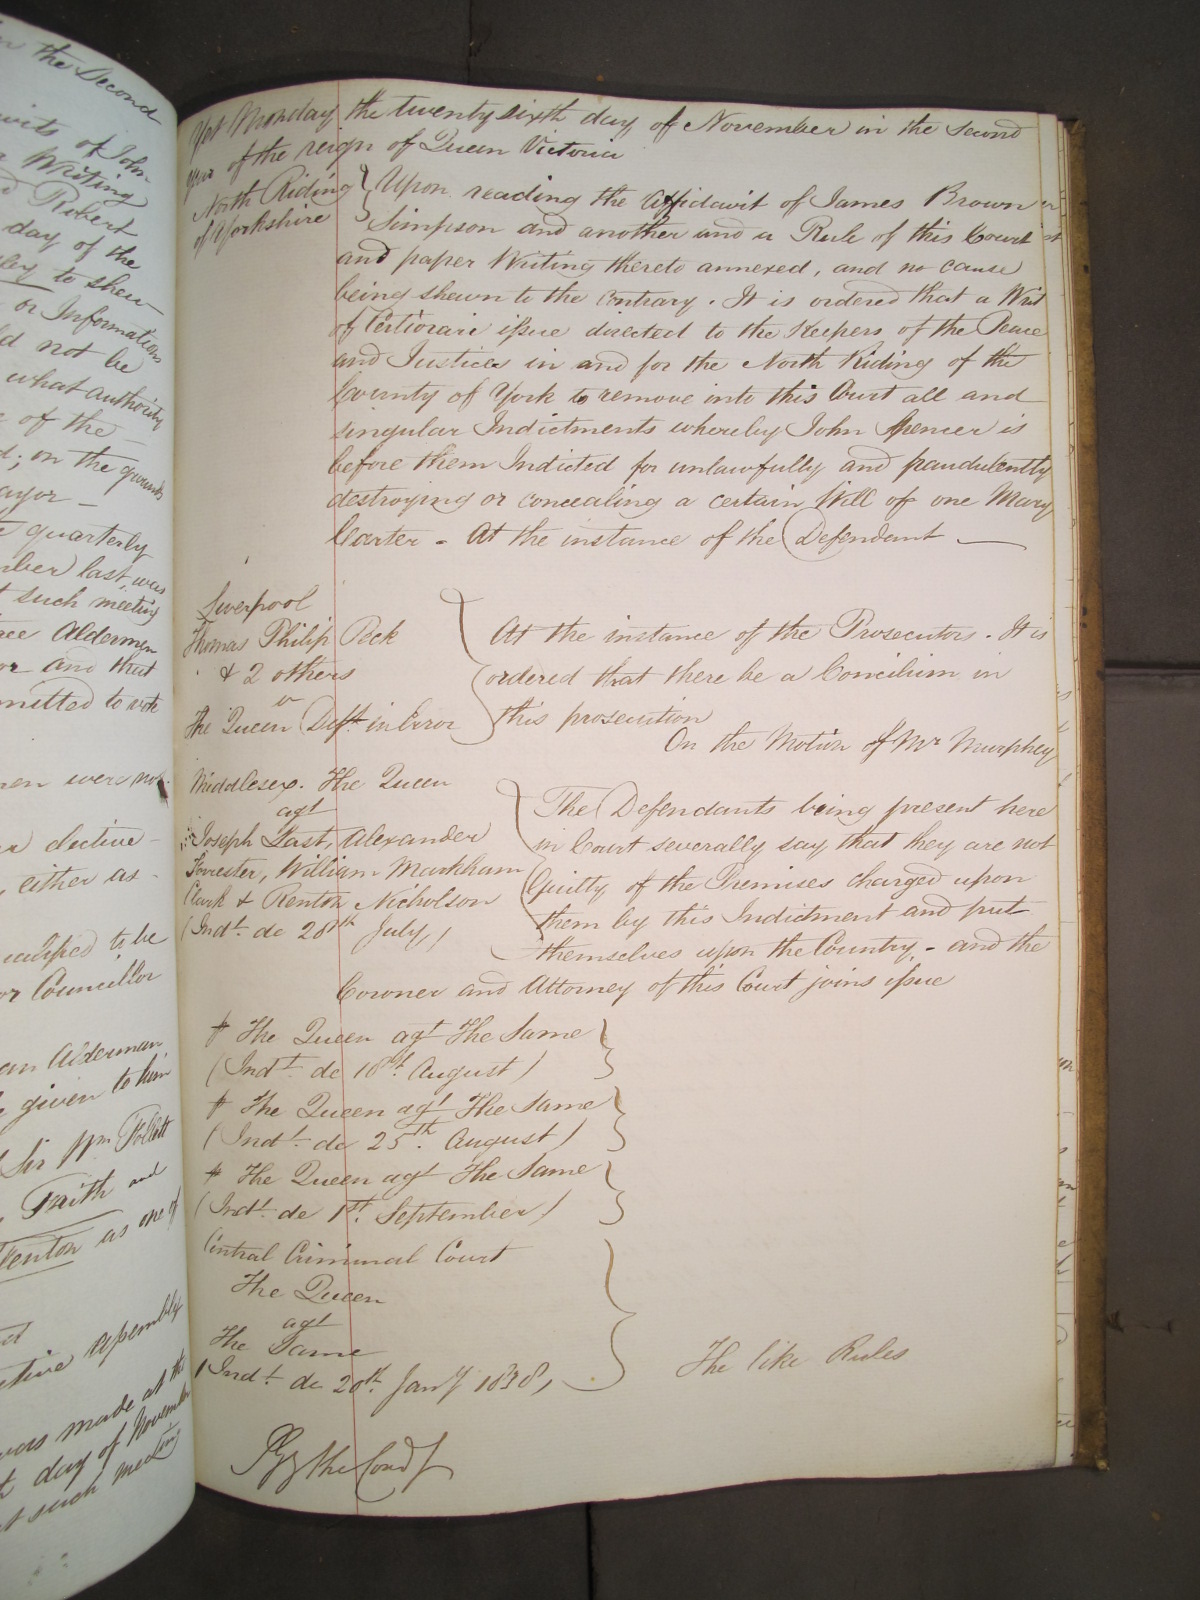 in the Second
of John
Writing
Robert
day of the
to shew
or Information
not be
what authority
of the
on the grounds
quarterly
last, was
such meeting
Aldermen
and that
to vote
were not
elective
either as
to be
or Councillor
an Alderman
given to him
Sir Wm Follett
Faith and
as one of
Assembly
was made at the
day of November
such meeting
Yet Monday the twenty sixth day of November in the Second
year of the reign of Queen Victoria
North Riding
of Yorkshire
Upon reading the Affidavit of James Brown
Simpson and another and a Rule of this Court
and paper Writing thereto annexed, and no cause
being shewn to the contrary. It is ordered that a Writ
of Certiorari issue directed to the Keepers of the Peace
and Justices in and for the North Riding of the
County of York to remove into this Court all and
singular Indictments whereby John Spencer is
before them Indicted for unlawfully and fraudulently
destroying or concealing a certain Will of one Mary
Carter - At the instance of the Defendant
Liverpool
Thomas Philip Peck
& 2 others
v
The Queen Deft. in Error
At the instance of the Prosecutors. It is
ordered that there be a Concilium in
this prosecution
On the Motion of Mr Murphey
Middlesex. The Queen
agt
Joseph Last, Alexander
Forrester, William Markham
Clark & Renton Nicholson
(Indt. de 28th July)
The Defendants being present here
in Court severally say that they are not
Guilty of the Premises charged upon
them by this Indictment and put
themselves upon the Country - and the
Coroner and Attorney of this Court joins issue
The Queen agt The Same
(Indt. de 18th August)
The Queen agt The Same
(Indt. de 25th August)
The Queen agt The Same
(Indt. de 1st. September)
Central Criminal Court
The Queen
agt
The Same
(Indt. de 20th Jany 1838)
The like Rules
By the Court